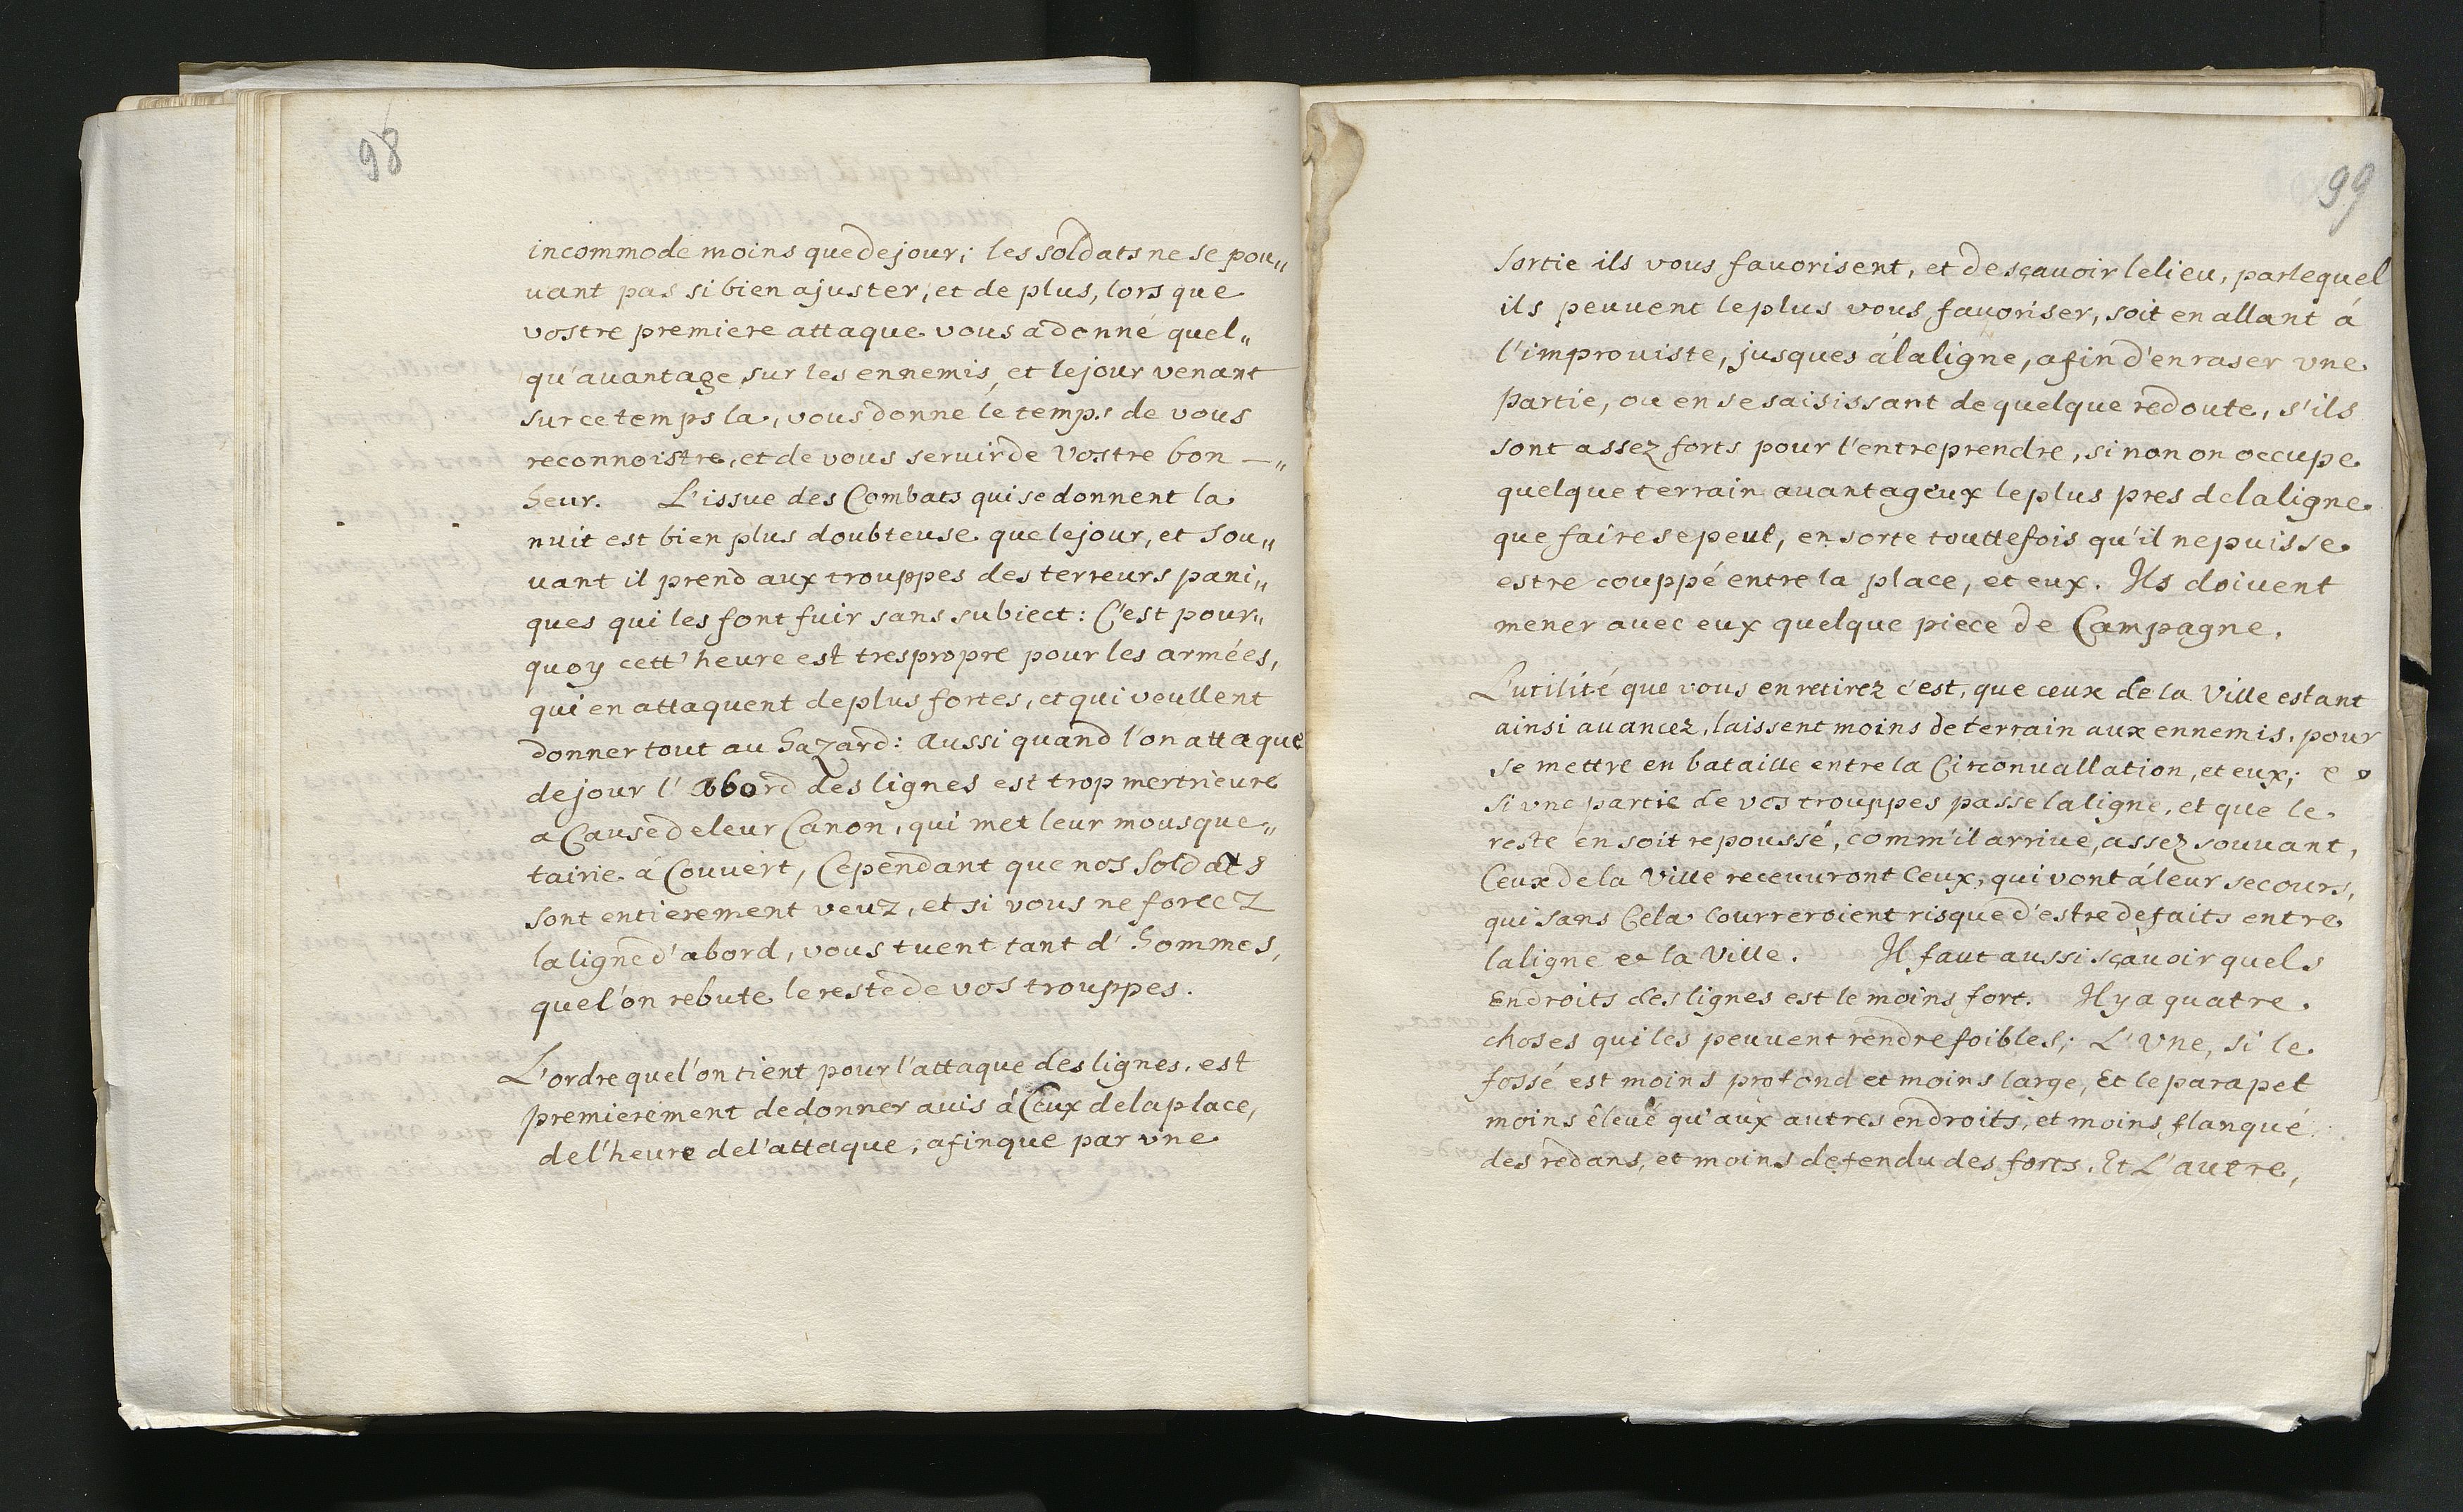 98
incommode moins que de jour; les soldats ne se pou„
uant pas si bien ajuster, et de plus, lors que
vostre premiere attaque vous a donné quel„
qu'auantage sur les ennemis, et le jour venant
sur ce temps la, vous donne le temps de vous
reconnoistre, et de vous seruir de vostre bon —„
heur. L'issue des Combats qui se donnent la
nuit est bien plus doubteuse que le jour, et sou„
uant il prend aux trouppes des terreurs pani„
ques qui les font fuir sans subiect: C'est pour„
quoy cett'heure est trespropre pour les armées,
qui en attaquent de plus fortes, et qui veullent
donner tout au hazard: Aussi quand l'on attaque
de jour l'abord des lignes est trop mertrieure
a Cause de leur Canon, qui met leur mousque„
tairie à Couvert, Cependant que nos soldats
sont entierement veuz, et si vous ne forcez
la ligne d'abord, vous tuent tant d'hommes,
que l'on rebute le reste de vos trouppes.
L'ordre que l'on tient pour l'attaque des lignes, est
premierement de donner auis à Ceux de la place,
de l'heure de l'attaque, afin que par vne
99
sortie ils vous fauorisent, et de sçauoir le lieu, par lequel
ils peuuent le plus vous fauoriser, soit en allant à
l'improuiste, jusques à la ligne, afin d'en raser vne
partie, ou en se saisissant de quelque redoute, s'ils
sont assez forts pour l'entreprendre, si non on occupe
quelque terrain auantageux le plus pres de la ligne
que faire se peut, en sorte touttefois qu'il ne puisse
estre couppé entre la place, et eux. Ils doiuent
mener auec eux quelque piece de Campagne,
L'utilité que vous en retirez c'est, que ceux de la Ville estant
ainsi auancez, laissent moins de terrain aux ennemis, pour
se mettre en bataille entre la Circonuallation, et eux;
si vne partie de vos trouppes passe la ligne, et que le
reste en soit repoussé, comm'il arriue, assez souuant,
Ceux de la Ville receuuront Ceux, qui vont à leur secours,
qui sans Cela Courreroient risque d'estre defaits entre
la ligne et la Ville. Il faut aussi sçauoir quels
Endroits des lignes est le moins fort. Il y a quatre
choses qui les peuuent rendre foibles; L'vne, si le
fossé est moins profond et moins large, Et le parapet
moins éleué qu'aux autres endroits, et moins flanqué
des redans, et moins defendu des forts. Et L'autre,